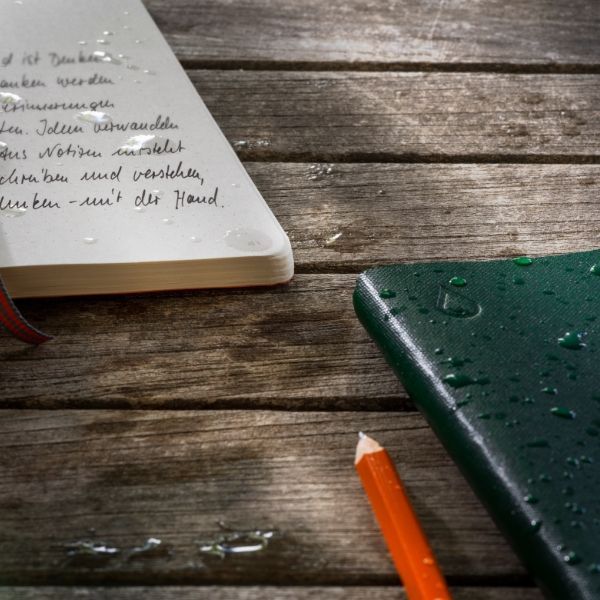 ist Denken
anken werden
Erinnerungen
ten. Ideen verwandeln
Aus Notizen entsteht
chreiben und verstehen,
denken - mit der Hand.